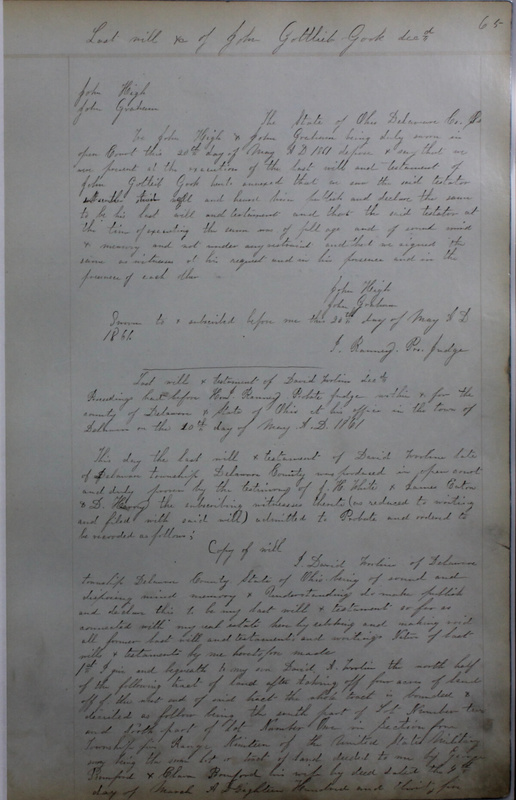 65
Last will &c of John Gottlieb Gook decd
John High
John Graham
The State of Ohio Delaware Co. Ss
We John High & John Graham being duly sworn in
open Court this 20th day of May A D 1861 depose & say that we
were present at the execution of the last will and testament of
John Gottlieb Gook that we saw the said testator
and heard him publish and declare the same
to be his last will and testament and that the said testator at
the time of executing the same was of full age and of sound mind
& memory and not under any restraint and that we signed the
same as witnesses at his request and in his presence and in the
presence of each other
John High
John Graham
Sworn to & subscribed before me this 20th day of May A D
1866
J. Ranney. Pro. Judge
Last will & testament of David Decd
Proceedings had before Probate judge within & for the
county of Delaware & State of Ohio at his office in the town of
Delaware on the 20th day of May A. D. 1861
This day the last will & testament of David late
of Delaware township Delaware County was produced in open court
and duly proven by the testimony of J. H. White & James Eaton
& D. the subscribing witnesses thereto (as reduced to writing
and filed with said will) admitted to Probate and ordered to
be recorded as follows;
Copy of will
I. David of Delaware
township Delaware County State of Ohio being of sound and
disposing mind memory & understanding do make publish
and declare this to be my last will & testament so far as
connected with my real estate here by revoking and making void
all former last will and testaments and writings in nature of last
wills & testaments by me heretofore made
1st I give and bequeath to my son David the north half
of the following tract of land after taking off four acres of land
off of the end of said tract the whole tract is bounded &
described as follows being the south part of Lot Number two
and north part of Lot Number One in Section four
Township five Range Nineteen of the United States Military
being the same lot or tract of land deeded to me by George
& his wife by deed dated the
day of March A D Eighteen Hundred and